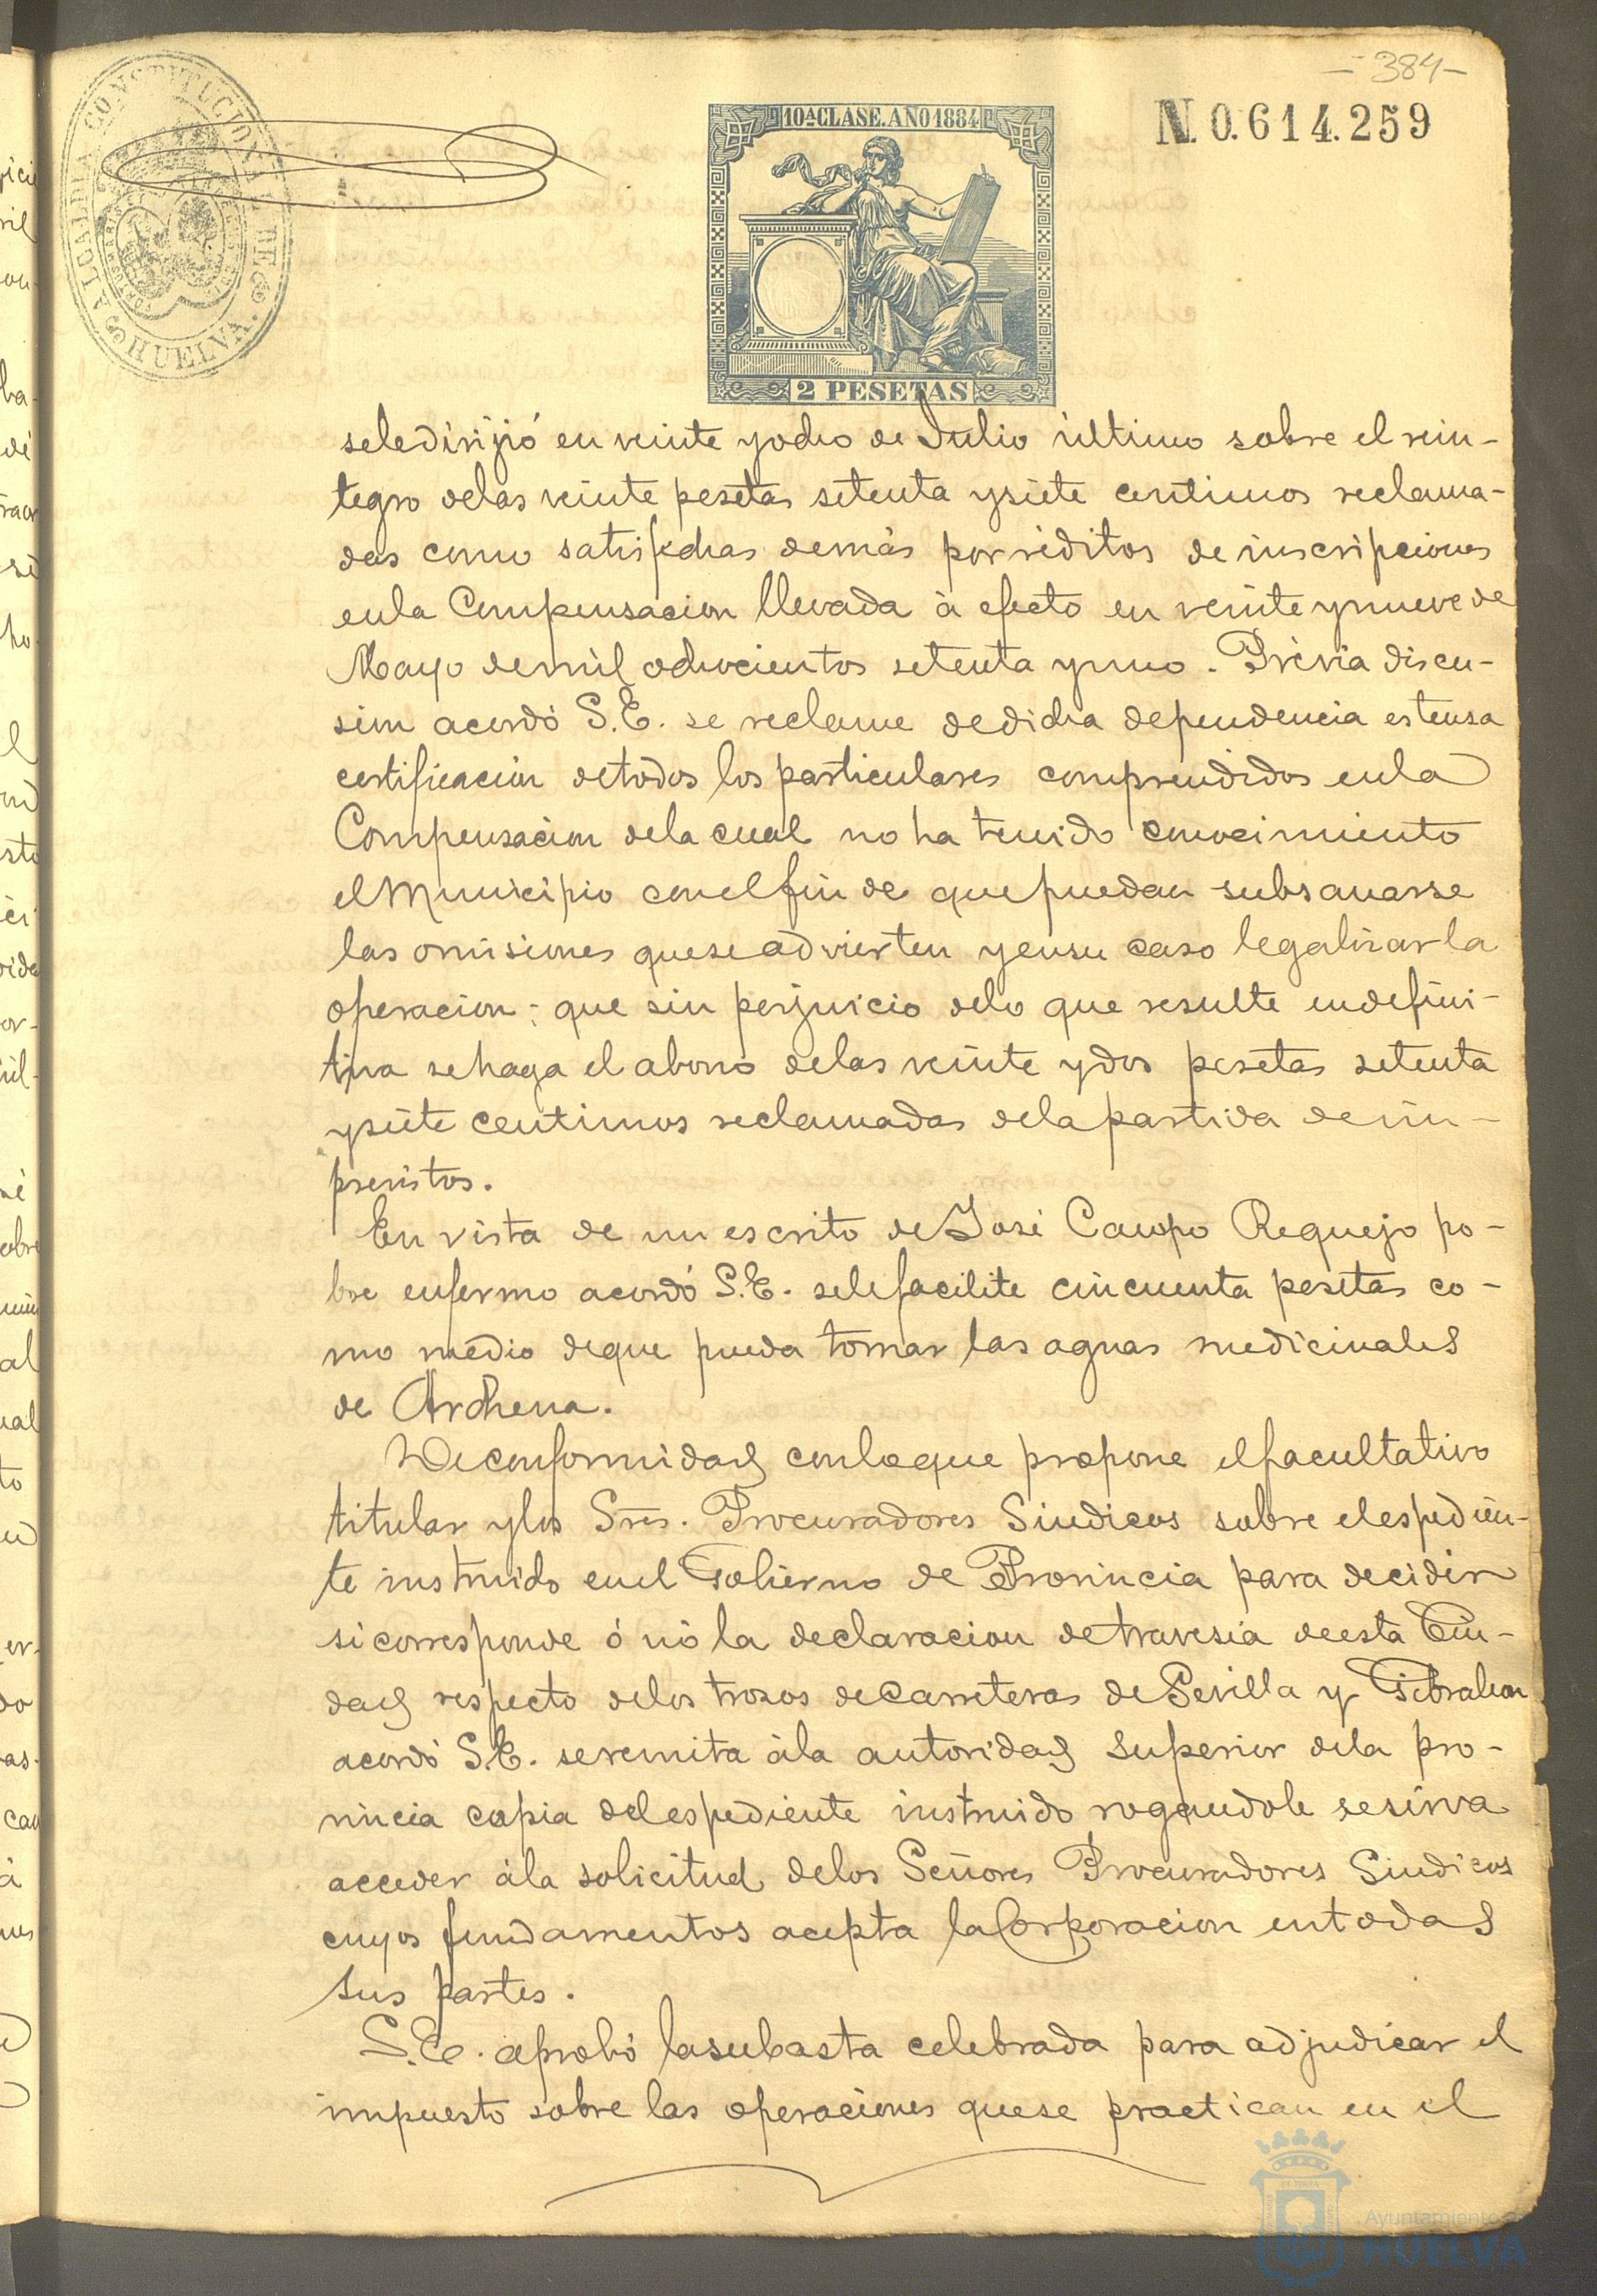 -384-
N. 0.614.259
ALCALDIA CONSTITUCIONAL DE HUELVA.
10ª CLASE. AÑO 1884
2 PESETAS
sele dirijió en veinte y ocho de Julio último sobre el rein-
tegro delas veinte pesetas setenta y siete centimos reclama-
das como satisfechas demás por réditos de inscripciones
enla Compensacion llevada à efecto en veinte y nueve de
Mayo demil ochocientos setenta y uno. Prévia discu-
sion acordó S.E. se reclame dedicha dependencia estensa
certificacion detodos los particulares comprendidos enla
Compensacion dela cual no ha tenido conocimiento
el Municipio conelfin de que puedan subsanarse
las omisiones quese advierten y ensu caso legalizar la
operacion; que sin perjuicio delo que resulte endefini-
tiva sehaga el abono delas veinte y dos pesetas setenta
y siete centimos reclamadas dela partida de im-
previstos.
En vista de un escrito de José Campo Requejo po-
bre enfermo acordó S.E. sele facilite cincuenta pesetas co-
mo medio deque pueda tomar las aguas medicinales
de Archena.
De conformidad conloque propone el facultativo
titular y los Sres. Procuradores Sindicos sobre el espedien-
te instruido enel Gobierno de Provincia para decidir
si corresponde ó nó la declaracion de travesia deesta Ciu-
dad respecto delos trozos de carreteras de Sevilla y Gibraleon
acordó S.E. seremita àla autoridad Superior dela pro-
vincia copia del espediente instruido rogandole se sirva
acceder àla solicitud delos Señores Procuradores Sindicos
cuyos fundamentos acepta la Corporacion entodas
sus partes.
S.E. aprobó lasubasta celebrada para adjudicar el
impuesto sobre las operaciones quese practican en el
Ayuntamiento
HUELVA